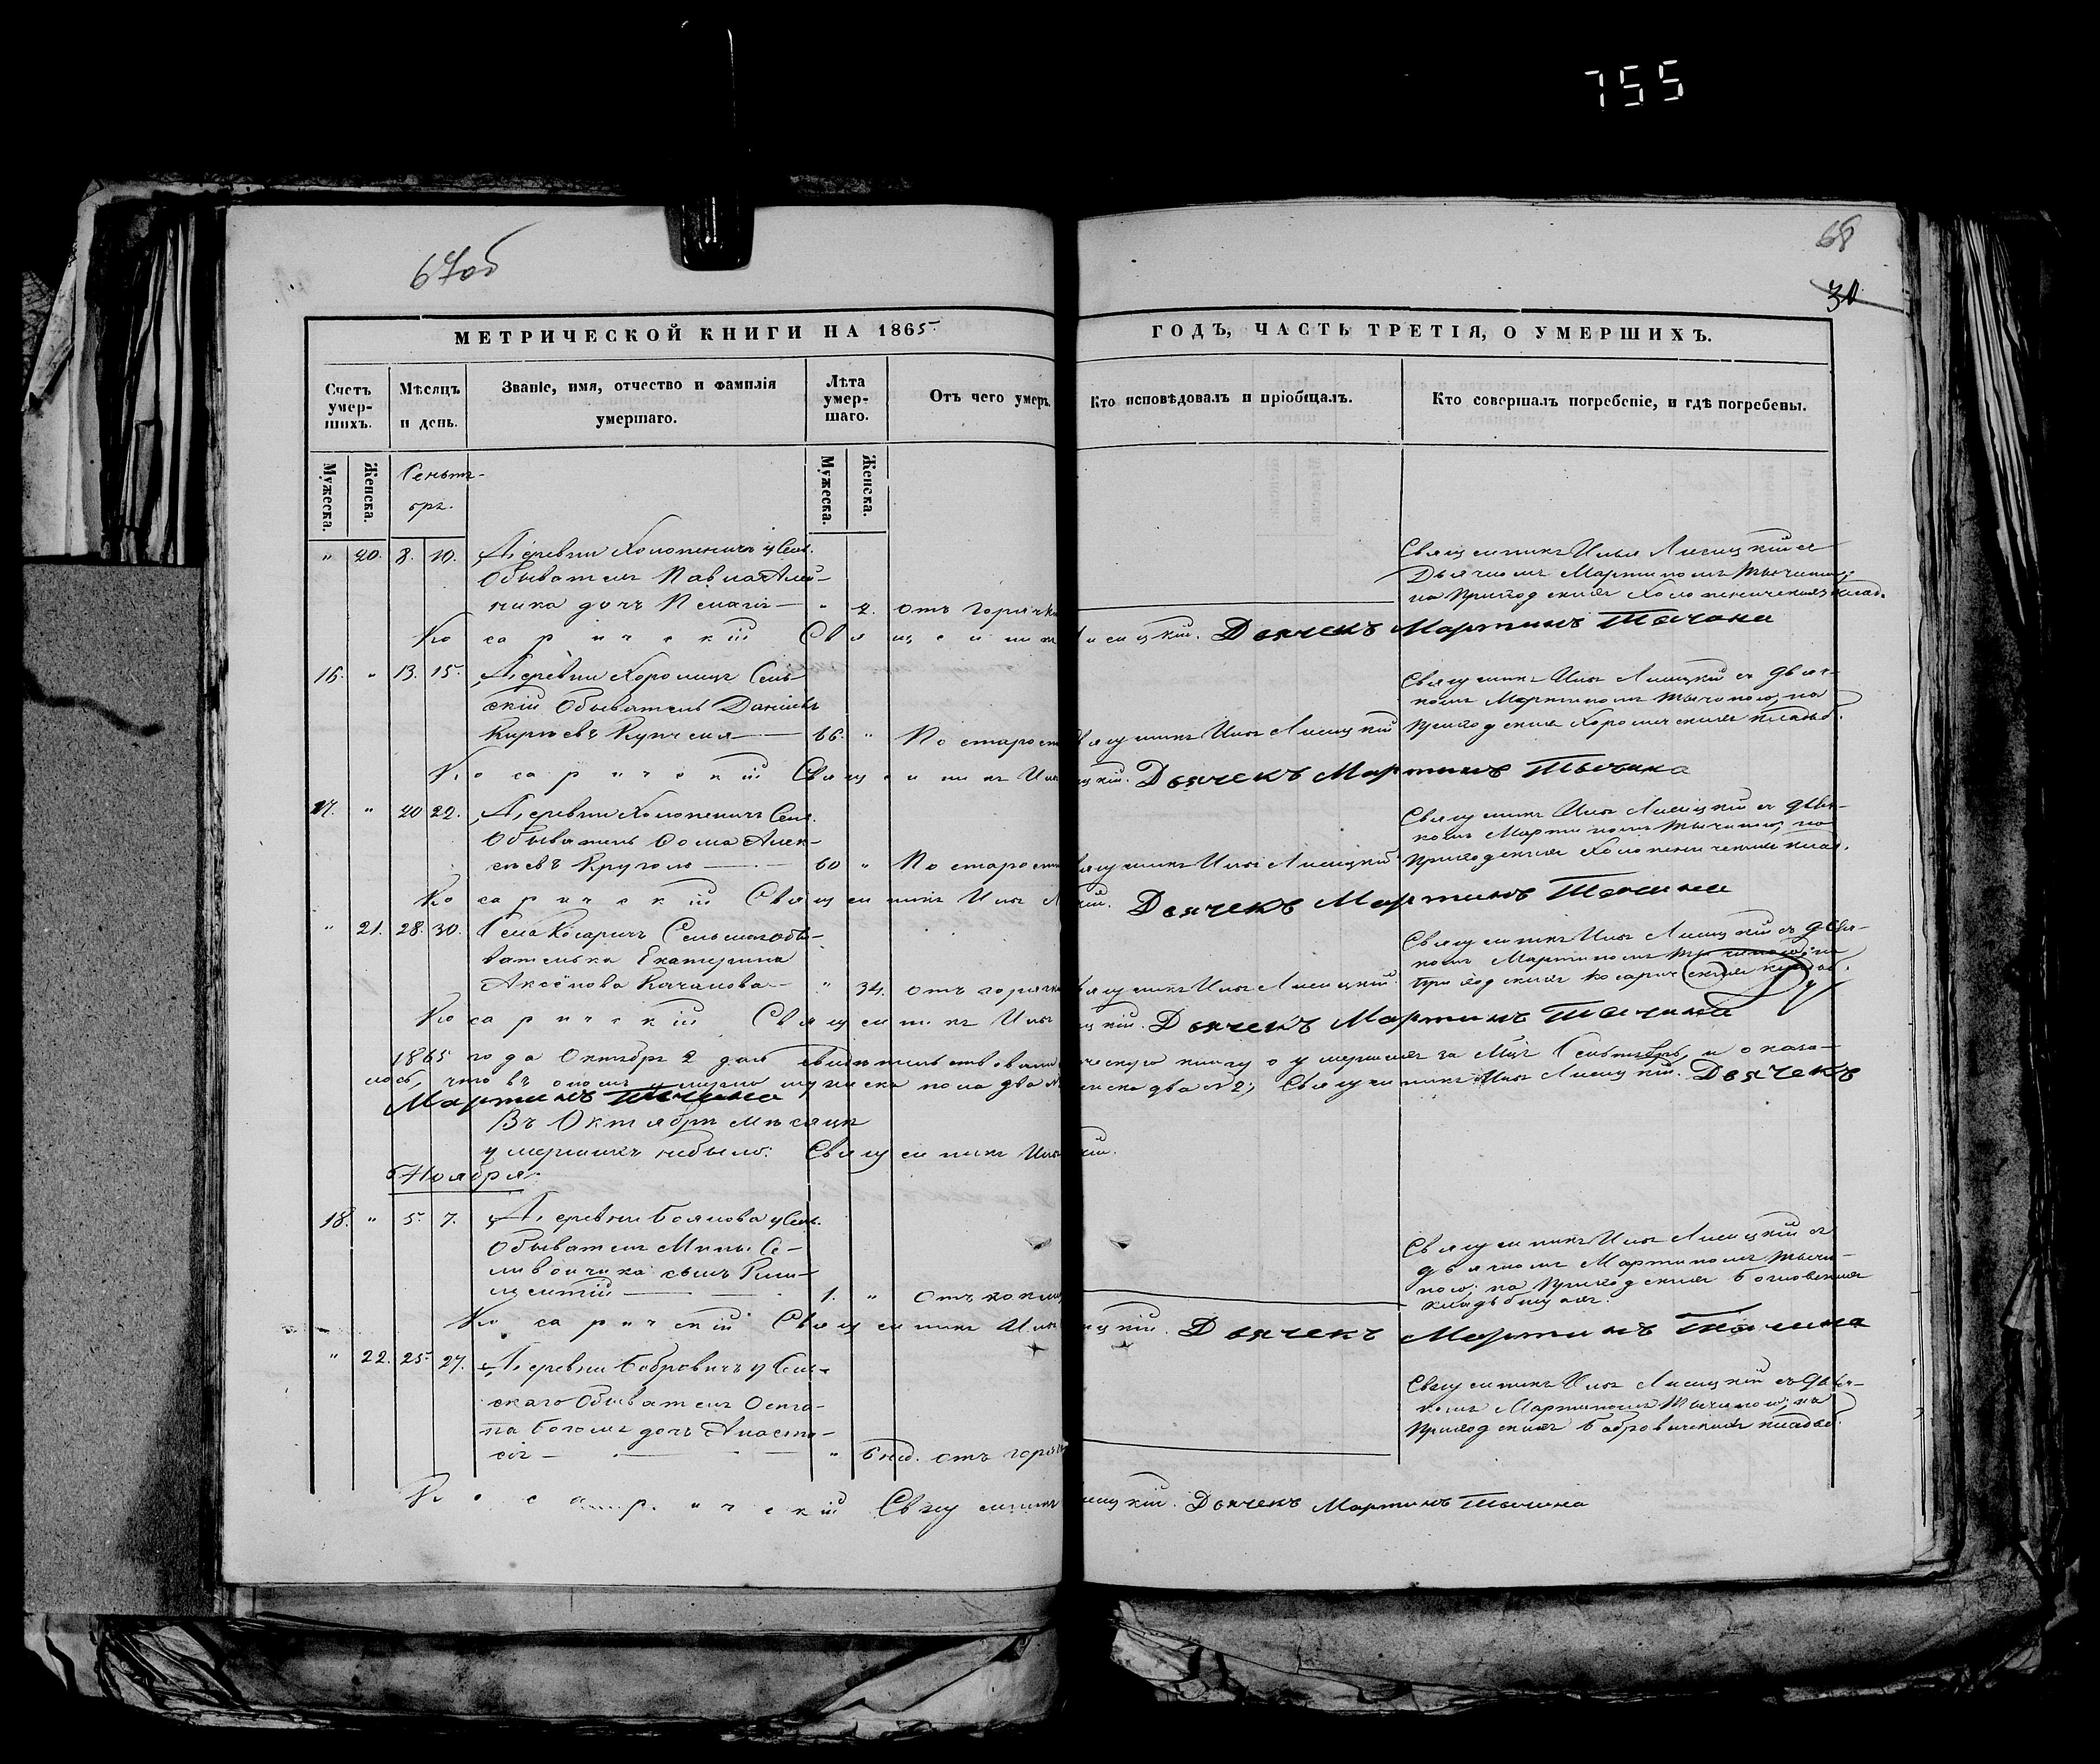 755
67об
68
30
МЕТРИЧЕСКОЙ КНИГИ НА 1865
ГОДЪ, ЧАСТЬ ТРЕТІЯ, О УМЕРШИХЪ.
Счетъ умер-шихъ.
Мѣсяцъ и день.
Званіе, имя, отчество и фамилія умершаго.
Лѣта умер-шаго.
Отъ чего умеръ.
Кто исповѣдовалъ и пріобщалъ.
Кто совершалъ погребеніе, и гдѣ погребены.
Мужеска.
Женска.
Сентя-
бря.
Мужеска.
Женска.
" 20. 8. 10. Деревни Холопеничъ у Сель.
Обывателя Павла Алей-
ника дочь Пелагія — " 2. отъ горячки
Священникъ Илья Лисицкій съ
Дьячкомъ Мартиномъ Тычиною;
на Приходскихъ Холопеническихъ клад.
Косаричскій Священникъ Лисицкій. Дьячекъ Мартинъ Тычина
16. " 13. 15. Деревни Хоромицъ Сель-
скій Обыватель Даніилъ
Кирѣевъ Купчеля — 66. " По старости Священникъ Илья Лисицкій
Священникъ Илья Лисицкій съ дьяч-
комъ Мартиномъ Тычиною, на
Приходскихъ Хоромичскихъ кладб.
Косаричскій Священникъ Илья Лисицкій. Дьячекъ Мартинъ Тычина
17. " 20 22. Деревни Холопеничъ Сель.
Обыватель Ѳома Алек-
сѣевъ Круголь — 60 " По старости Священникъ Илья Лисицкій
Священникъ Илья Лисицкій съ дьяч-
комъ Мартиномъ Тычиною, на
Приходскихъ Холопеническихъ клад.
Косаричскій Священникъ Илья Лисицкій. Дьячекъ Мартинъ Тычина
" 21. 28. 30. Села Косаричъ Сельская обы-
вателька Екатерина
Аксёнова Качанова — " 34. отъ горячки Священникъ Илья Лисицкій
Священникъ Илья Лисицкій съ дьяч-
комъ Мартиномъ Тычиною; на
приходскихъ Косаричскихъ кладб.
Косаричскій Священникъ Илья Лисицкій. Дьячекъ Мартинъ Тычина
1865 года Октября 2 дня свидѣтельствовали книгу о умершихъ за Мцъ Сентябрь, и оказа-
лось, что въ ономъ умерло мужеска пола два женска два №2; Священникъ Илья Лисицкій. Дьячекъ
Мартинъ Тычина
Въ Октябрѣ Мѣсяцѣ
умершихъ небыло: Священникъ Илья
Ноября
18. " 5. 7. Деревни Боянова у Сель.
Обывателя Мины Се-
ливончика сынъ
1. " Отъ коклюша
Священникъ Илья Лисицкій съ
дьячкомъ Мартиномъ Тычи-
ною; на Приходскихъ Бояновскихъ
кладбищахъ.
Косаричскій Священникъ Илья Лисицкій. Дьячекъ Мартинъ Тычина
" 22. 25. 27. Деревни Бобровичъ у Сель-
скаго Обывателя Оста-
па дочь Анаста-
сія — " 6 нед. отъ горячки
Священникъ Илья Лисицкій съ Дьяч-
комъ Мартиномъ Тычиною, на
Приходскихъ Бобровичскихъ кладб.
Косаричскій Священникъ Лисицкій. Дьячекъ Мартинъ Тычина